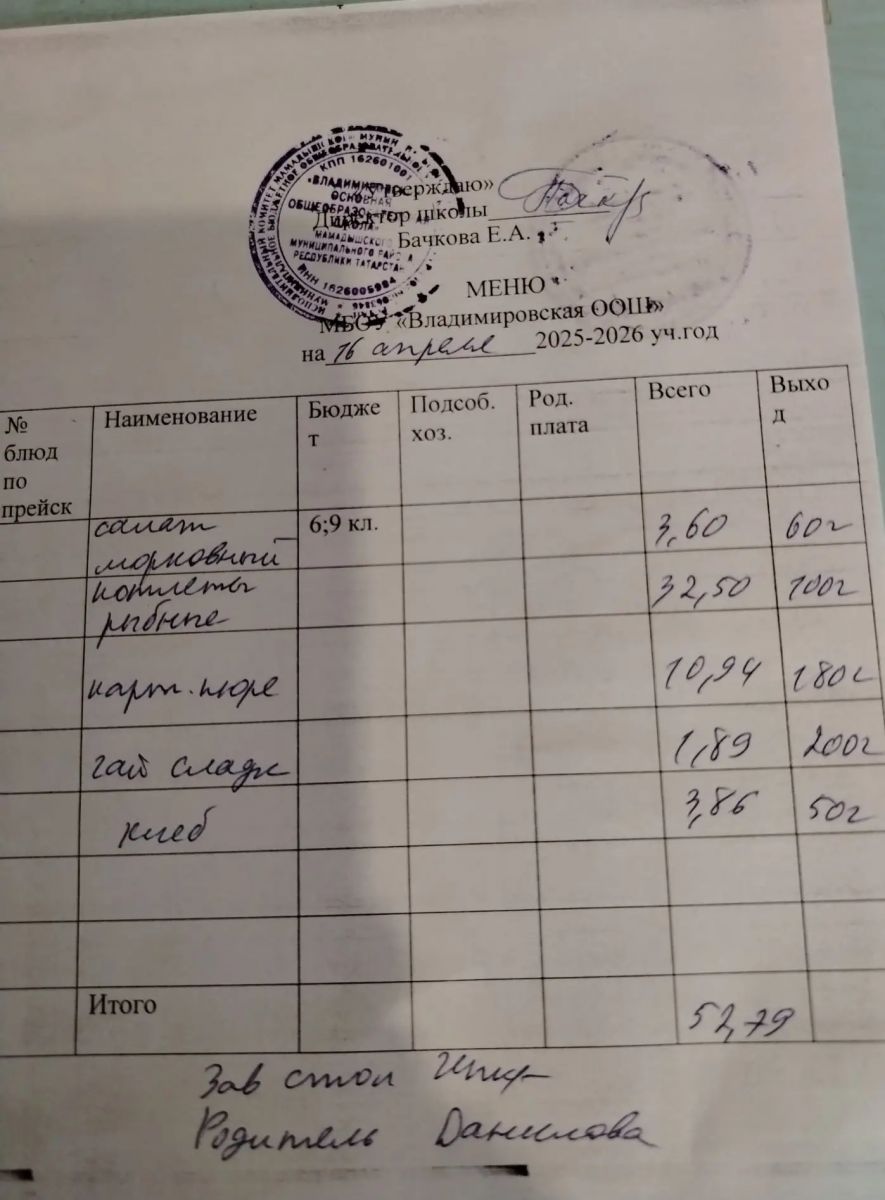 «Утверждаю»
Директор школы
Бачкова Е.А.
КПП 162601001
«ВЛАДИМИРОВСКАЯ
ОСНОВНАЯ
ОБЩЕОБРАЗОВАТЕЛЬНАЯ
ШКОЛА»
МАМАДЫШСКОГО
МУНИЦИПАЛЬНОГО РАЙОНА
РЕСПУБЛИКИ ТАТАРСТАН
ИНН 1626005904
МЕНЮ
МБОУ «Владимировская ООШ»
на 16 апреля 2025-2026 уч.год
№ блюд по прейск Наименование Бюджет Подсоб. хоз. Род. плата Всего Выход
салат морковный 6;9 кл. 3,60 60г
котлеты рыбные 32,50 100г
карт. пюре 10,94 180г
чай сладк 1,89 200г
хлеб 3,86 50г
Итого 52,79
Зав стол
Родитель Данилова